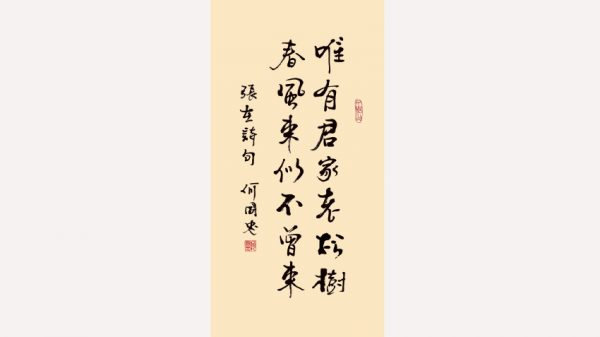 唯有君家老松樹
春風來似不曾來
張在詩句 何國忠